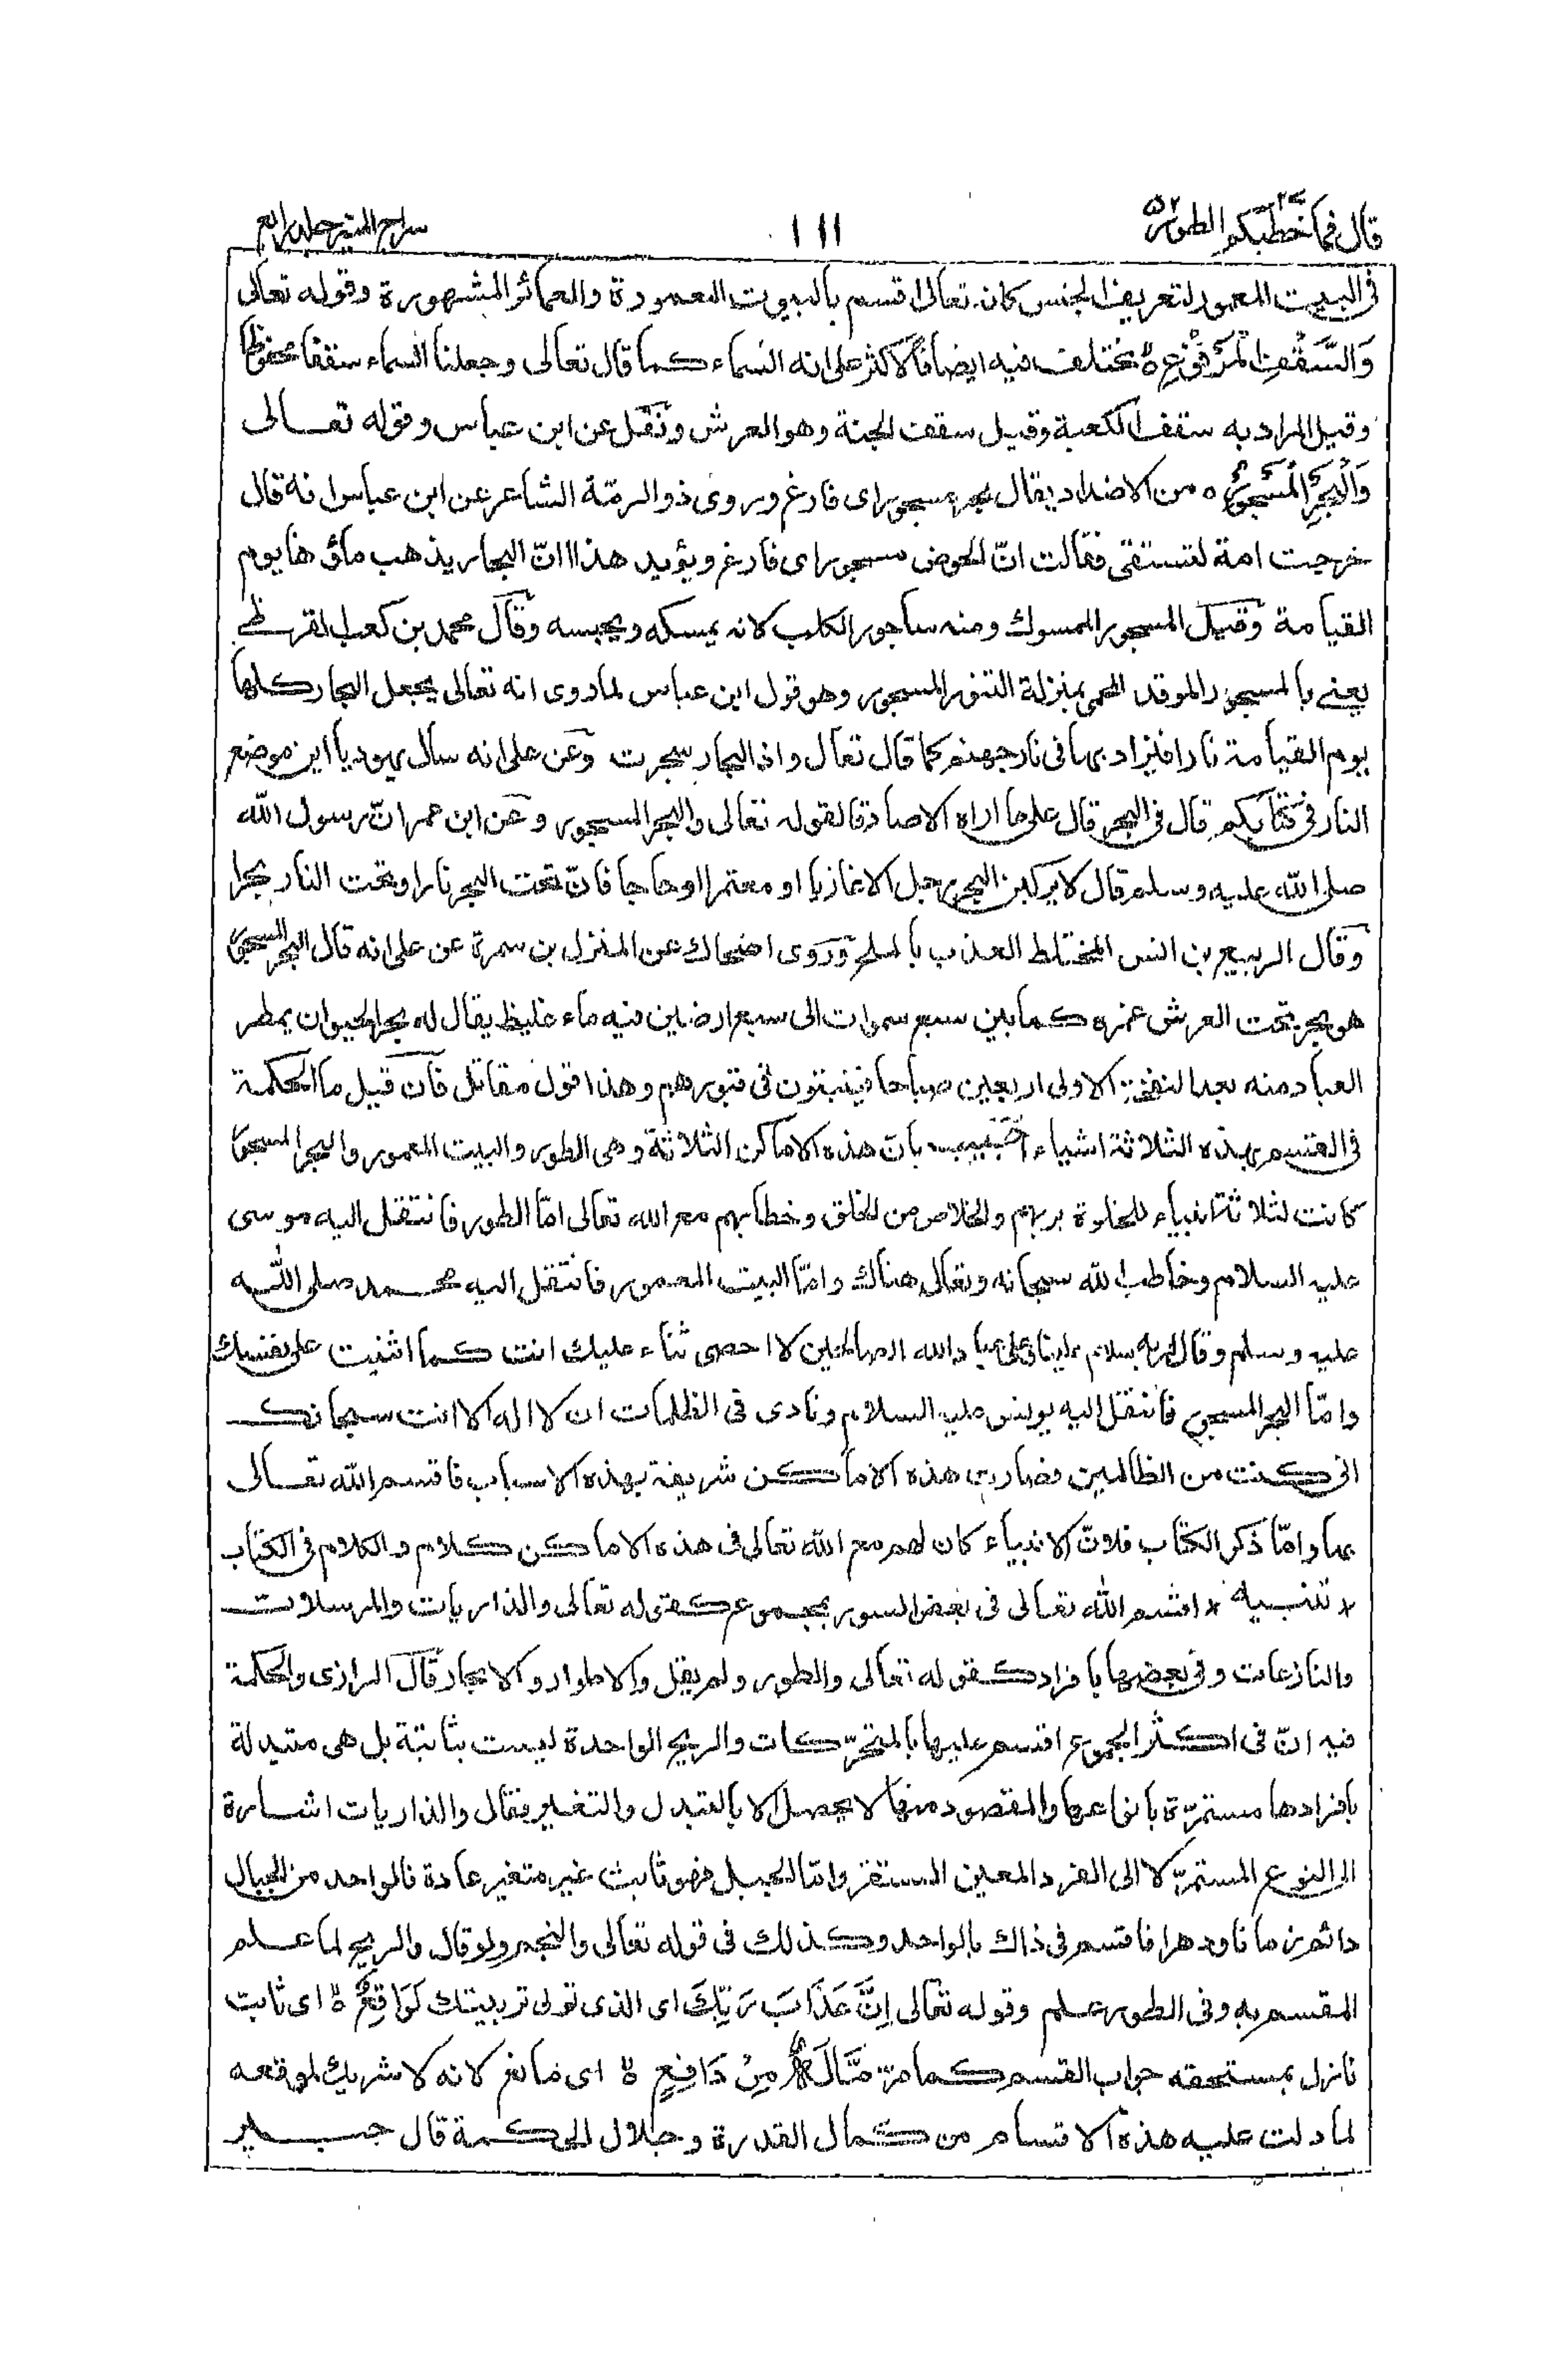 قال فما خطبكم ٢٧ الطور ٥٢
١١١
سراج المنير جلد رابع
فى البيت المعمور لتعريف الجنس كانه تعالى اقسم بالبيوت المعمورة والعمائر المشهورة وقوله تعالى
وَالسَّقْفِ الْمَرْفُوْعِ ه مختلف فيه ايضا فالاكثر على انه السماء كما قال تعالى وجعلنا السماء سقفا محفوظا
وقيل المراد به سقف الكعبة وقيل سقف الجنة وهو العرش ونقل عن ابن عباس وقوله تعالى
وَالْبَحْرِ الْمَسْجُوْرِ ه من الاضداد يقال بحر مسجور اى فارغ وروى ذو الرمّة الشاعر عن ابن عباس انه قال
خرجت امة لتستقى فقالت انّ الحوض مسجور اى فارغ ويؤيد هذا انّ البحار يذهب ماؤها يوم
القيامة وقيل المسجور الممسوك ومنه ساجور الكلب لانه يمسكه ويحبسه وقال محمد بن كعب القرظى
يعنى بالمسجور الموقد المحمى بمنزلة التنور المسجور وهو قول ابن عباس لما روى انه تعالى يجعل البحار كلها
يوم القيامة نارا فيزاد بها فى نار جهنم كما قال تعالى واذا البحار سجرت وعن على انه سأل يهوديا اين موضع
النار فى كتابكم قال فى البحر قال على ما اراه الا صادقا لقوله تعالى والبحر المسجور وعن ابن عمر انّ رسول الله
صلى الله عليه وسلم قال لا يركبن البحر رجل الا غازيا او معتمرا او حاجا فانّ تحت البحر نارا وتحت النار بحرا
وقال الربيع بن انس المختلط العذب بالملح وروى الضحاك عن النزال بن سمرة عن على انه قال البحر المسجور
هو بحر تحت العرش غمره كما بين سبع سموات الى سبع ارضين فيه ماء غليظ يقال له بحر الحيوان يمطر
العباد منه بعد النفخة الاولى اربعين صباحا فينبتون فى قبورهم وهذا قول مقاتل فان قيل ما الحكمة
فى القسم بهذه الثلاثة اشياء اجيب بانّ هذه الاماكن الثلاثة وهى الطور والبيت المعمور والبحر المسجور
كانت لثلاثة انبياء للخلوة بربهم والخلاص من الخلق وخطابهم مع الله تعالى امّا الطور فانتقل اليه موسى
عليه السلام وخاطب الله سبحانه وتعالى هناك وامّا البيت المعمور فانتقل اليه محمد صلى الله
عليه وسلم وقال لربه سلام علينا وعلى عباد الله الصالحين لا احصى ثناء عليك انت كما اثنيت على نفسك
وامّا البحر المسجور فانتقل اليه يونس عليه السلام ونادى فى الظلمات ان لا اله الا انت سبحانك
انى كنت من الظالمين فصارت هذه الاماكن شريفة بهذه الاسباب فاقسم الله تعالى
بها وامّا ذكر الكتاب فلانّ الانبياء كان لهم مع الله تعالى فى هذه الاماكن كلام والكلام فى الكتاب
* تنبيه * اقسم الله تعالى فى بعض السور بمجموع كقوله تعالى والذاريات والمرسلات
والنازعات وفى بعضها بافراد كقوله تعالى والطور ولم يقل والاطوار والابحار قال الرازى والحكمة
فيه انّ فى اكثر الجموع اقسم عليها بالمتحرّكات والريح الواحدة ليست بثابتة بل هى متبدلة
بافرادها مستمرّة بانواعها والمقصود منها لا يحصل الا بالتبدل والتغير فقال والذاريات اشارة
الى النوع المستمرّ لا الى الفرد المعين المستقر وامّا الجبل فهو ثابت غير متغير عادة فالواحد من الجبال
دائم زمانا ودهرا فاقسم فى ذاك بالواحد وكذلك فى قوله تعالى والنجم ولو قال والريح لما علم
المقسم به وفى الطور علم وقوله تعالى اِنَّ عَذَابَ رَبِّكَ اى الذى تولى تربيتك لَوَاقِعٌ ه اى ثابت
نازل بمستحقه جواب القسم كما مرّ مَّالَهٗ مِنْ دَافِعٍ ه اى مانع لانه لا شريك لموقعه
لما دلت عليه هذه الاقسام من كمال القدرة وجلال الحكمة قال جبير